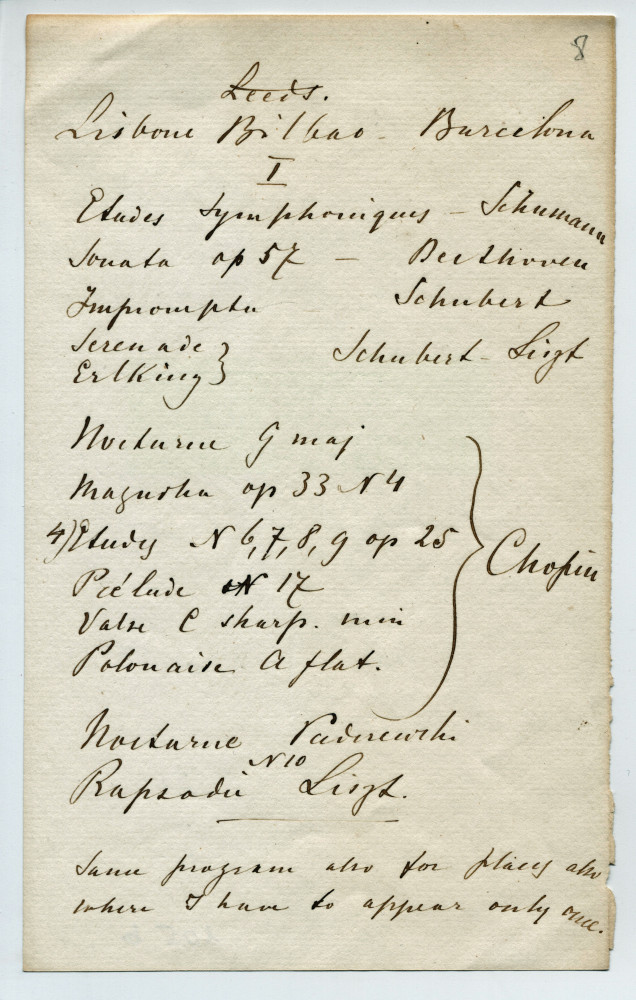 8
Leeds.
Lisbone Bilbao - Barcelona
I
Etudes symphoniques - Schumann
Sonata op 57 - Beethoven
Impromptu Schubert
Serenade
ErlKing } Schubert - Liszt
Nocturne G maj
Mazurka op 33 N 4
4) Etudes N 6, 7, 8, 9 op 25
Prélude N 17
Valse C sharp. min
Polonaise A flat.
Chopin
Nocturne Paderewski
Rapsodie N 10 Liszt.
Same program also for places also
where I have to appear only once.